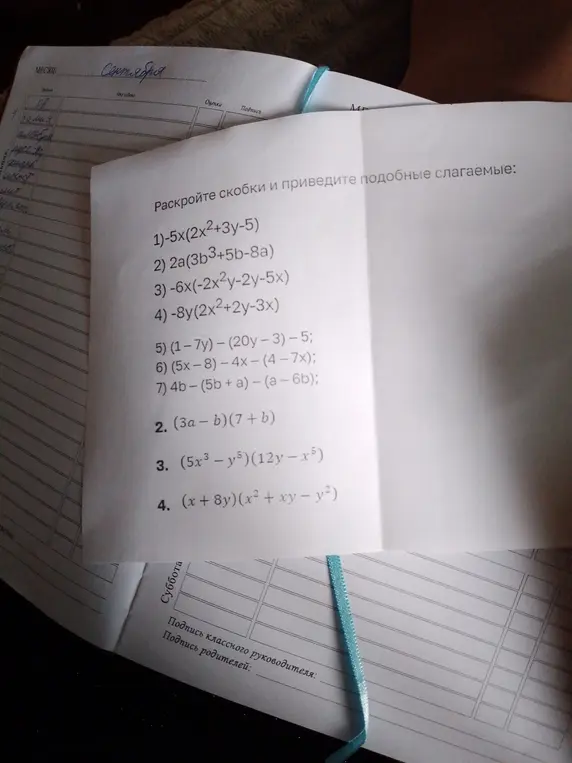 МЕСЯЦ Сентября
Оценка Подпись
Раскройте скобки и приведите подобные слагаемые:
1)-5x(2x²+3y-5)
2) 2a(3b³+5b-8a)
3) -6x(-2x²y-2y-5x)
4) -8y(2x²+2y-3x)
5) (1 – 7y) – (20y – 3) – 5;
6) (5x – 8) – 4x – (4 – 7x);
7) 4b – (5b + a) – (a – 6b);
2. (3a – b)(7 + b)
3. (5x³ – y⁵)(12y – x⁵)
4. (x + 8y)(x² + xy – y²)
Суббота
Подпись классного руководителя:
Подпись родителей: